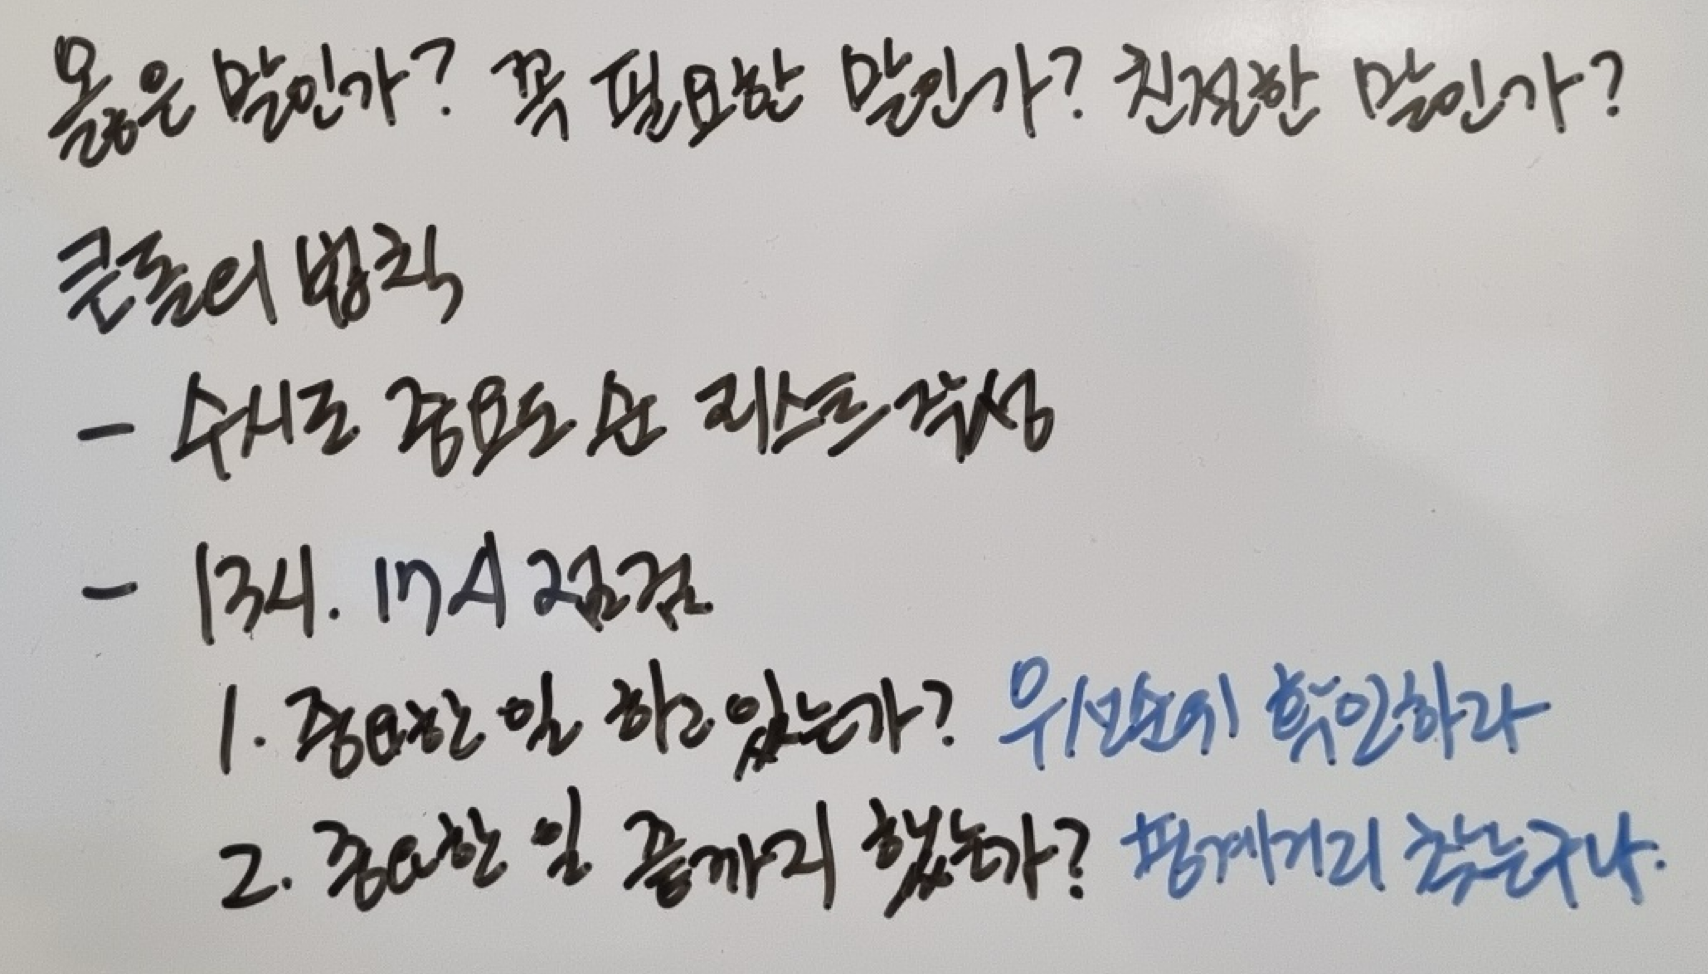 옳은 말인가? 꼭 필요한 말인가? 친절한 말인가?
큰돌의 법칙
- 수시로 중요도 순 리스트 작성
- 13시. 17시 점검
1. 중요한 일 하고 있는가? 우선순위 확인하라
2. 중요한 일 끝까지 했는가? 핑계거리 찾는구나.